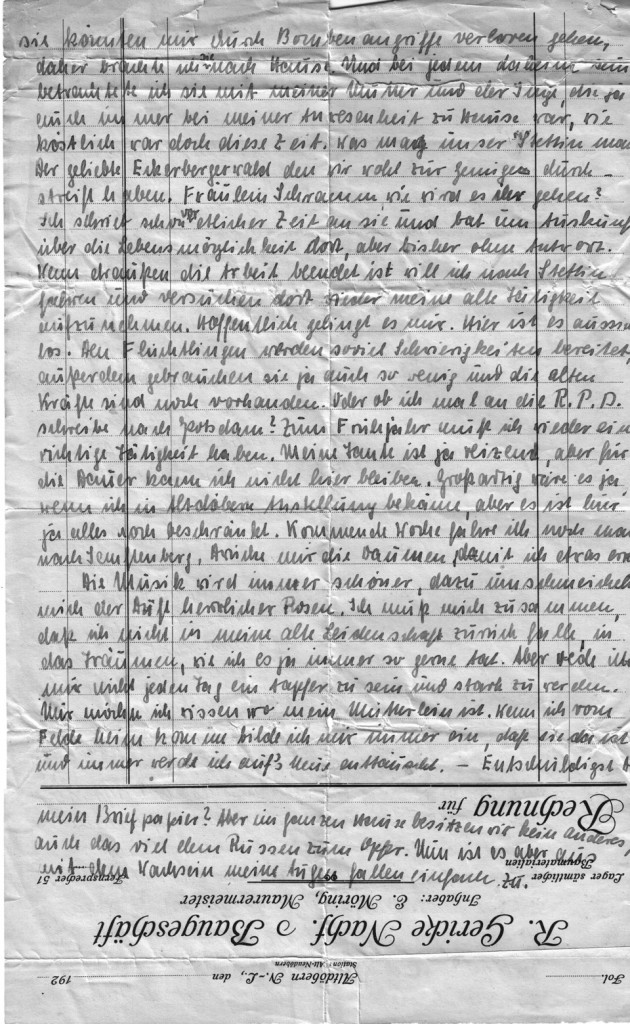 sie könnten mir durch Bombenangriffe verloren gehen,
daher brachte ich sie nach Hause. Und bei jedem daheim sein
betrachtete ich sie mit meiner Mutter und der Inge, die ja
auch immer bei meiner Anwesenheit zu Hause war, wie
köstlich war doch diese Zeit. Was mag unser Stettin
Der geliebte Eckerbergerwald den wir wohl zur Genüge durch-
streift haben. Fräulein Schramm wie wird es ihr gehen?
Ich schrieb schon vor etlicher Zeit an sie und bat um Auskunf
über die Lebensmöglichkeit dort, aber bisher ohne Antwort.
Wenn draußen die Arbeit beendet ist will ich nach Stettin
fahren und versuchen dort wieder meine alte Tätigkeit
aufzunehmen. Hoffentlich gelingt es mir. Hier ist es
los. Den Flüchtlingen werden soviel Schwierigkeiten bereitet,
außerdem gebrauchen sie ja auch so wenig und die alten
Kräfte sind noch vorhanden. Oder ob ich mal an die R.P.D.
schreibe nach Potsdam? Zum Frühjahr muß ich wieder ein
richtige Tätigkeit haben. Meine Tante ist ja reizend, aber für
die Dauer kann ich nicht hier bleiben. Großartig wäre es ja
wenn ich in Altdöbern Anstellung bekäme, aber es ist hier
ja alles noch beschränkt. Kommende Woche fahre ich noch
nach Senftenberg, drücke mir die Daumen, damit ich etwas
Die Musik wird immer schöner, dazu umschmeichelt
mich der Duft herrlicher Rosen. Ich muß mich zusammen,
daß ich nicht in meine alte Leidenschaft zurück falle, in
das Träumen, wie ich es ja immer so gerne tat. Aber rede ich
mir nicht jeden Tag ein tapfer zu sein und stark zu werden.
Nur möchte ich wissen wo mein Mütterlein ist. Wenn ich vom
Felde heim komme bilde ich mir immer ein, daß sie da ist
und immer werde ich auf's Neue enttäuscht. – Entschuldigst
mein Briefpapier? Aber im ganzen Hause besitzen wir kein anderes,
auch das viel dem Russen zum Opfer. Nun ist es aber aus
mit dem Wachsein meine Augen fallen einfach zu.
Fol.
Altdöbern N.-L., den 192
Station: Alt-Neudöbern
R. Gericke Nachf. Baugeschäft
Inhaber: E. Möring, Maurermeister
Lager sämtlicher Baumaterialien
Fernsprecher 51
Rechnung
für